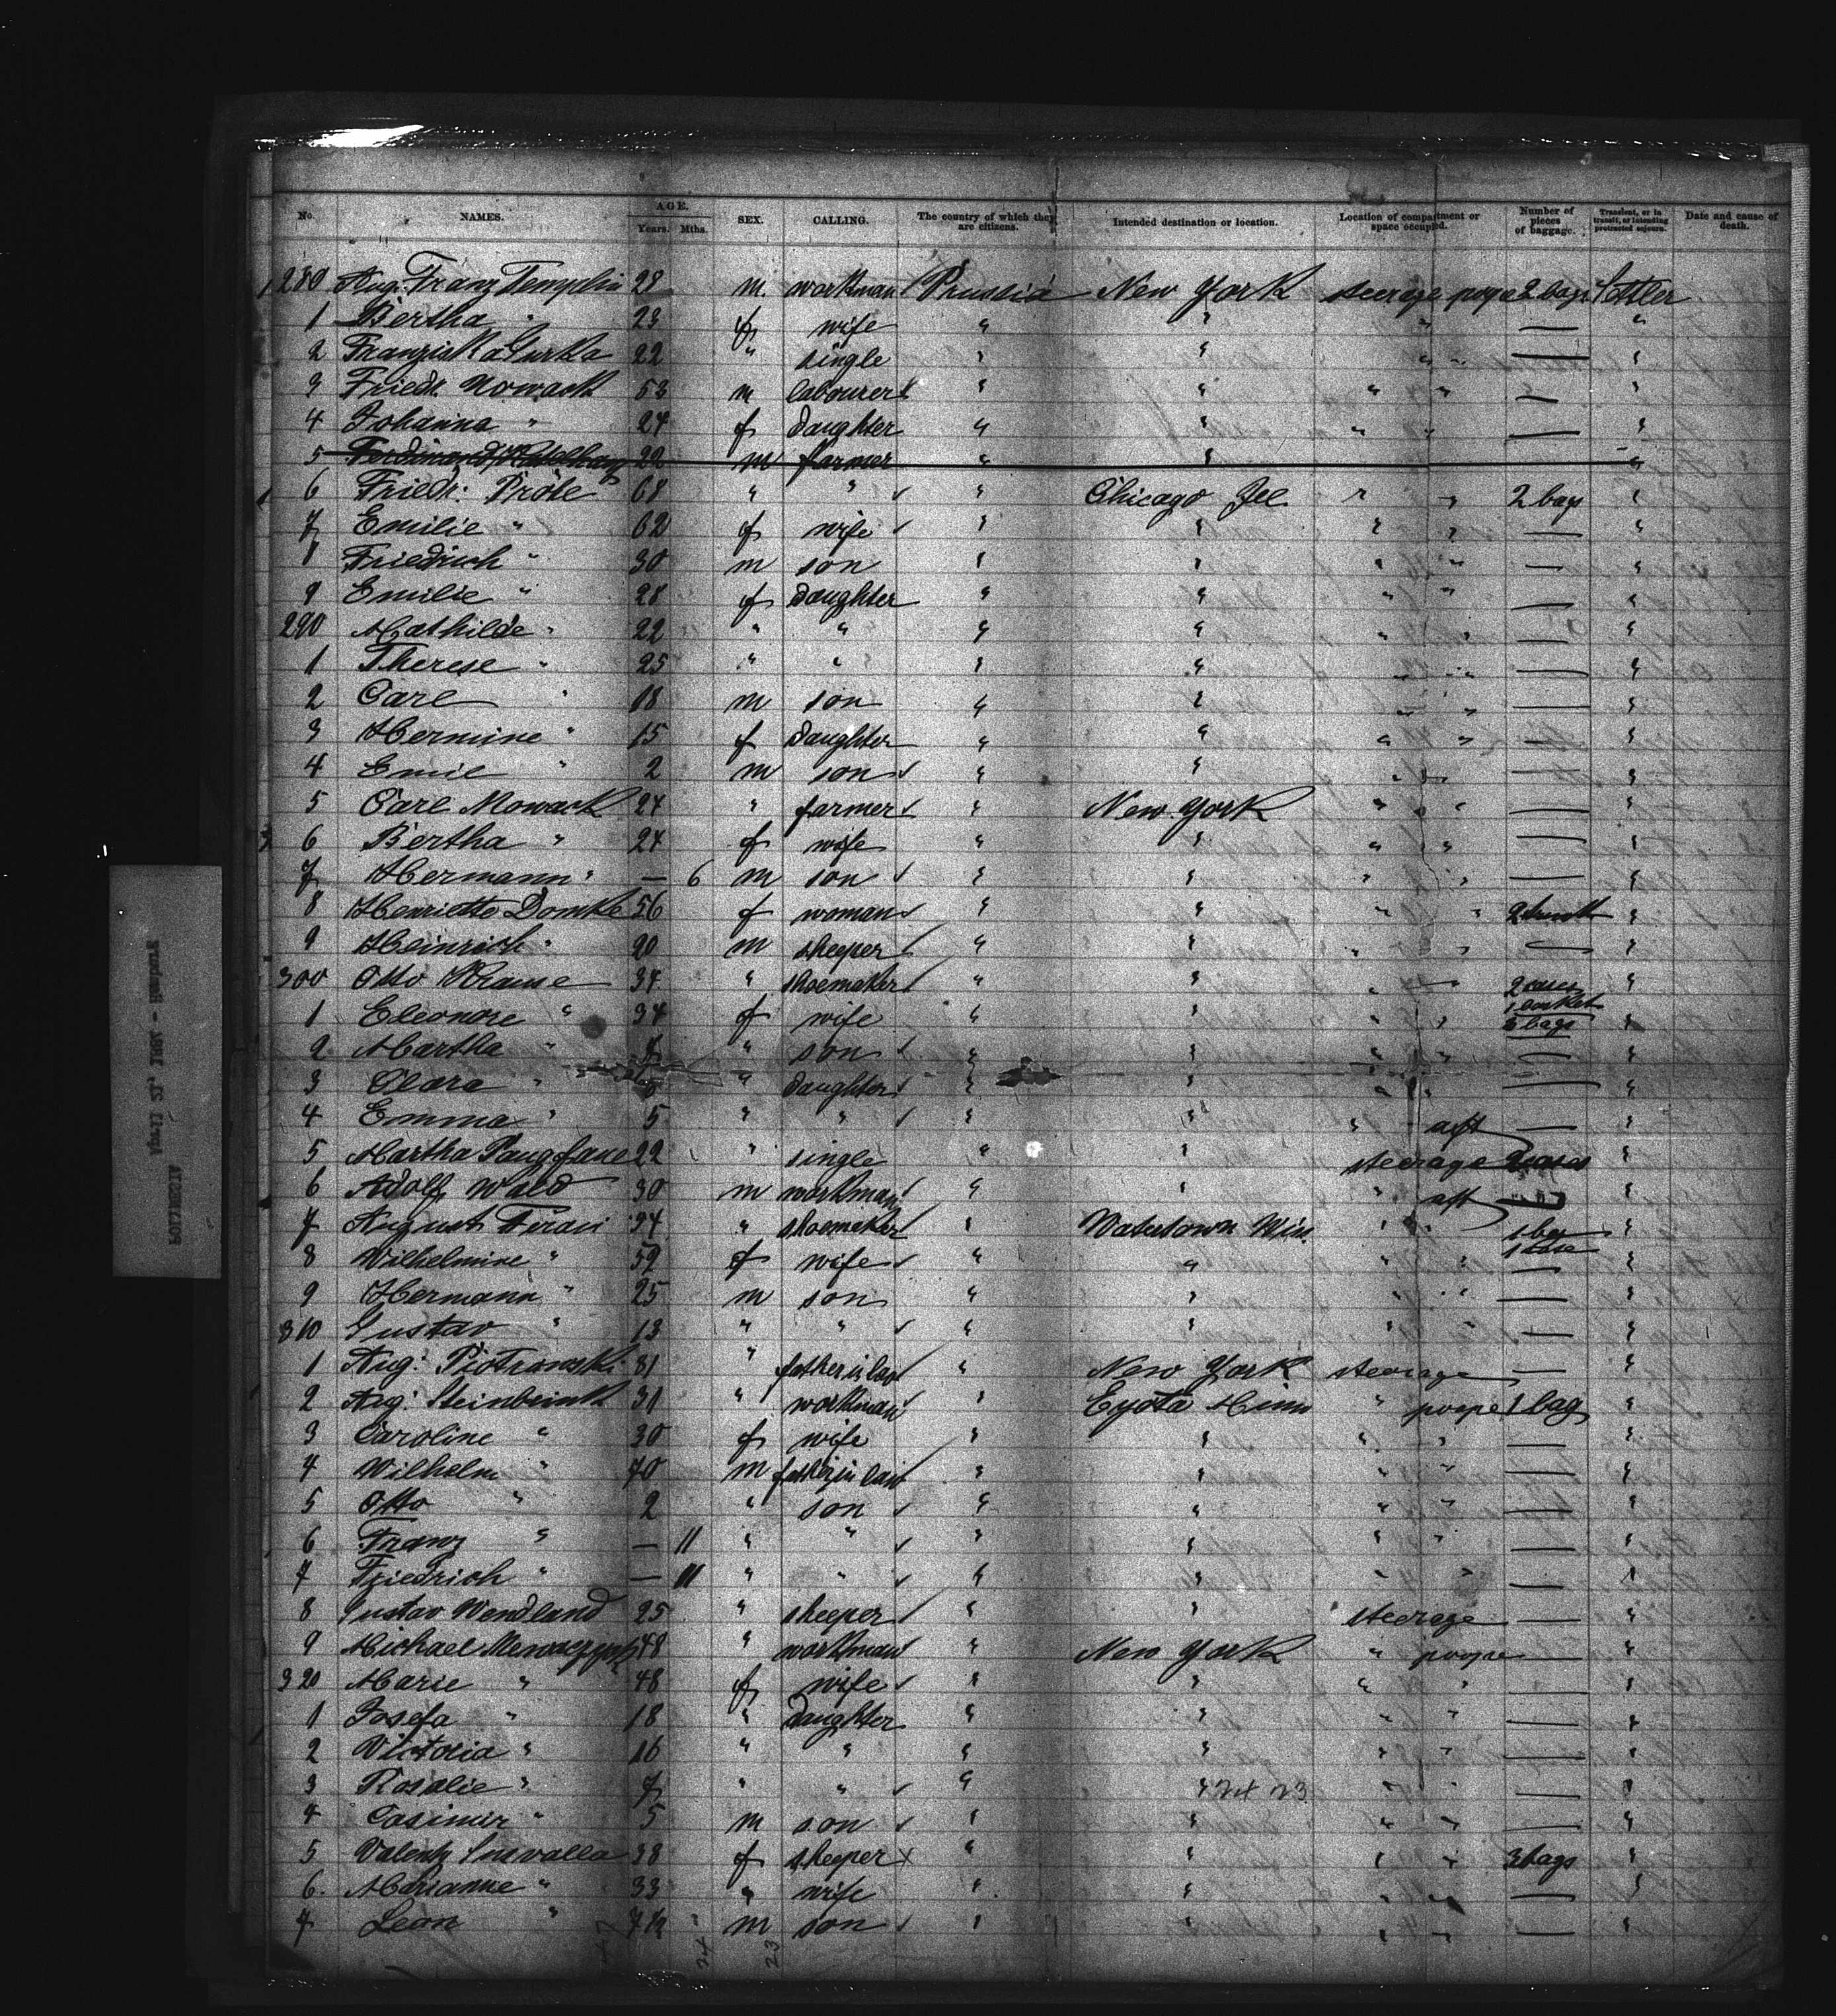 No. NAMES. AGE. Years. Mths. SEX. CALLING. The country of which they are citizens. Intended destination or location. Location of compartment or space occupied. Number of pieces of baggage. Transient, or in transit, or intending protracted sojourn. Date and cause of death.
280 Aug. Franz Templin 28 m. workman Prussia New York steerage poope 2 bags Settler
1 Bertha " 23 f wife " " " — "
2 Franziska Gurka 22 " single " " " " — "
3 Friedr. Nowack 53 m labourer " " " " — "
4 Johanna " 24 f daughter " " " " — "
5 Ferdinand 22 m farmer " " "
6 Friedr: Pröle 68 " " " Chicago Ill " " 2 bags "
7 Emilie " 62 f wife " " " " — "
8 Friedrich " 30 m son " " " " — "
9 Emilie " 28 f daughter " " " " — "
290 Mathilde " 22 " " " " " " — "
1 Therese " 25 " " " " " " — "
2 Carl " 18 m son " " " " — "
3 Hermine " 15 f daughter " " " " — "
4 Emil " 2 m son " " " " — "
5 Carl Nowack 24 " farmer " New York " " — "
6 Bertha " 24 f wife " " " " — "
7 Hermann " — 6 m son " " " " — "
8 Henriette Domke 56 f woman " " " " 2 trunk "
9 Heinrich " 20 m sheeper " " " " — "
300 Otto Krause 34 " shoemaker " " " " 2 cases "
1 basket
1 Eleonore " 34 f wife " " " " bags "
2 Martha " 7 " son " " " " — "
3 Clara " " daughter " " " " — "
4 Emma " 5 " " " " " — "
aft
5 Martha 22 " single " " steerage 2 cases "
6 Adolf Wald 30 m workman " " " aft "
7 August 34 " shoemaker " Watertown Wis. " " 1 bag "
1 case
8 Wilhelmine " 59 f wife " " " " — "
9 Hermann " 25 m son " " " " — "
310 Gustav " 13 " " " " " " — "
1 Aug: Piotrowski 81 " father in law " New York steerage — "
2 Aug: Steinbrink 31 " workman " Eyota Minn " poope 1 bag "
3 Caroline " 30 f wife " " " " — "
4 Wilhelm " 70 m father in law " " " " — "
5 Otto " 2 " son " " " " — "
6 Franz " — 11 " " " " " " — "
7 Friedrich " — 11 " " " " " " — "
8 Gustav Wendland 25 " sheeper " " steerage — "
9 Michael 48 " workman " New York " poope — "
320 Marie " 48 f wife " " " " — "
1 Josefa " 18 " daughter " " " " — "
2 Victoria " 16 " " " " " " — "
3 Rosalie " 7 " " " " 24 23 " " — "
4 Casimir " 5 m son " " " " — "
5 Valenty 38 f sheeper " " " " 3 bags "
6. Marianne " 33 " wife " " " " — "
7 Leon " m son " " " " — "
24 23
PRIWOITIG
April 22, 1881 - Humboldt